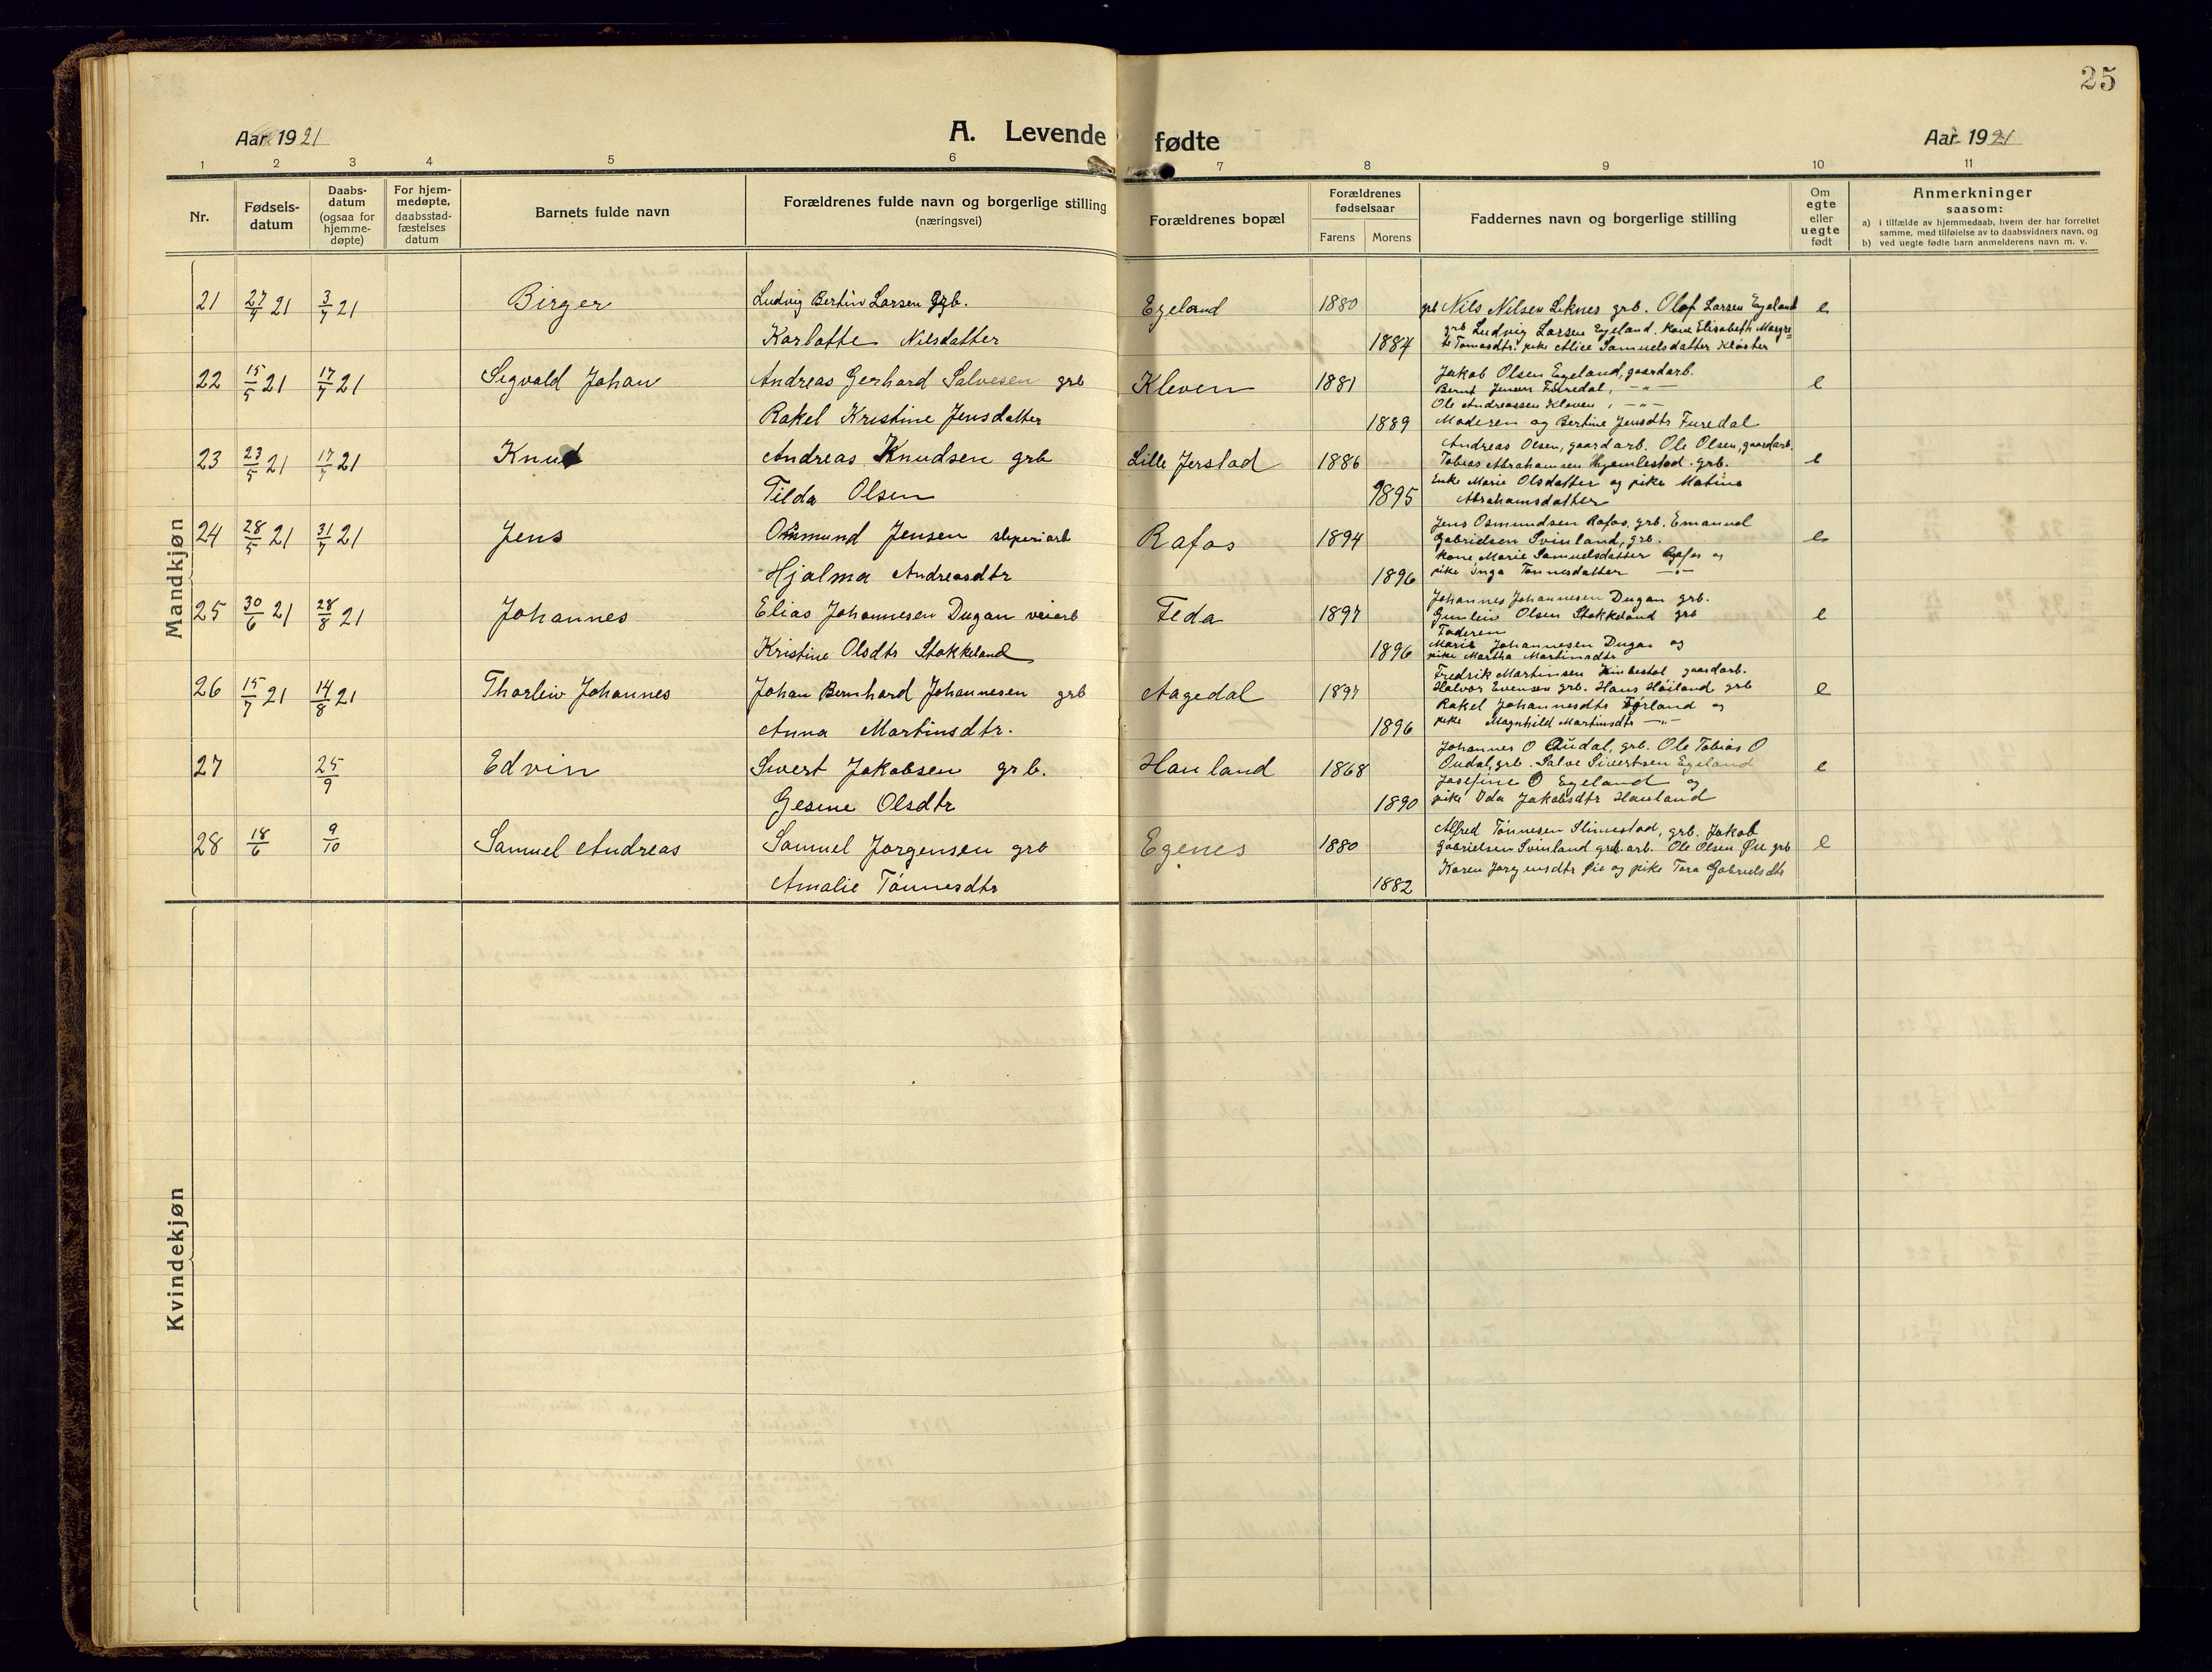 25
Aar 1921
A. Levende fødte
Aar 1921
1 2 3 4 5 6 7 8 9 10 11
Nr.
Fødsels-
datum
Daabs-
datum
(ogsaa for
hjemme-
døpte)
For hjem-
medøpte,
daabsstad-
fæstelses
datum
Barnets fulde navn
Forældrenes fulde navn og borgerlige stilling
(næringsvei)
Forældrenes bopæl
Forældrenes
fødselsaar
Farens Morens
Faddernes navn og borgerlige stilling
Om
egte
eller
uegte
født
Anmerkninger
saasom:
a) i tilfælde av hjemmedaab, hvem der har forrettet
samme, med tilføielse av to daabsvidners navn, og
b) ved uegte fødte barn anmelderens navn m. v.
Mandkjøn
21 27/4 21 3/7 21 Birger Ludvig Bertin Larsen grb. Egeland 1880 Nils Nilsen Leknes grb. Olaf Larsen Egeland e
grb Ludvig Larsen Egeland. Kone Elisabeth Margre=
Karlotte Nilsdatter 1884 te Tomasdtr. pike Alice Samuelsdatter Kloster
22 15/5 21 17/7 21 Sigvald Johan Andreas Gerhard Salvesen grb Kleven 1881 Jakob Olsen Egeland, gaardarb. e
Bernt Jensen Furedal, -"-
Ole Andreassen Kleven, -"-
Rakel Kristine Jensdatter 1889 Moderen og Bertine Jensdtr Furedal
23 23/5 21 17/7 21 Knud Andreas Knudsen grb Lille Jerstad 1886 Andreas Olsen, gaardarb. Ole Olsen, gaardarb. e
Tobias Abrahamsen Hjemlestad. grb.
Tilda Olsen 1895 Enke Marie Olsdatter og pike Matine
Abrahamsdatter
24 28/5 21 31/7 21 Jens Osmund Jensen sliperiarb Rafos 1894 Jens Osmundsen Rafos, grb. Emanuel e
Gabrielsen Svinland, grb.
kone Marie Samuelsdatter Rafos og
Hjalma Andreasdtr 1896 pike Inga Tønnesdatter -"-
25 30/6 21 28/8 21 Johannes Elias Johannesen Dugan veiarb Feda 1897 Johannes Johannesen Dugan grb. e
Gunleiv Olsen Stokkeland grb
Faderen
Kristine Olsdtr Stokkeland 1896 Marie Johannesen Dugan og
pike Martha Martinadtr
26 15/7 21 14/8 21 Thorleiv Johannes Johan Bernhard Johannesen grb Aagedal 1897 Fredrik Martinsen gaardarb. e
Halvor Evensen grb. Hans Høiland grb
Rakel Johannesdtr Førland og
Anna Martinsdtr. 1896 pike Magnhild Martinsdtr -"-
27 25/9 Edvin Sivert Jakobsen grb. Hauland 1868 Johannes O Oudal, grb. Ole Tobias O e
Oudal, grb. Salve Sivertsen Egeland
Josefine O Egeland og
Gesine Olsdtr 1890 pike Ida Jakobsdtr Hauland
28 18/6 9/10 Samuel Andreas Samuel Jørgensen grb Egenes 1880 Alfred Tønnesen Slimestad, grb. Jakob e
Gabrielsen Svinland grb. arb. Ole Olsen Øie grb
Amalie Tønnesdtr 1882 Karen Jørgensdtr Øie og pike Tora Gabrielsdtr
Kvindekjøn